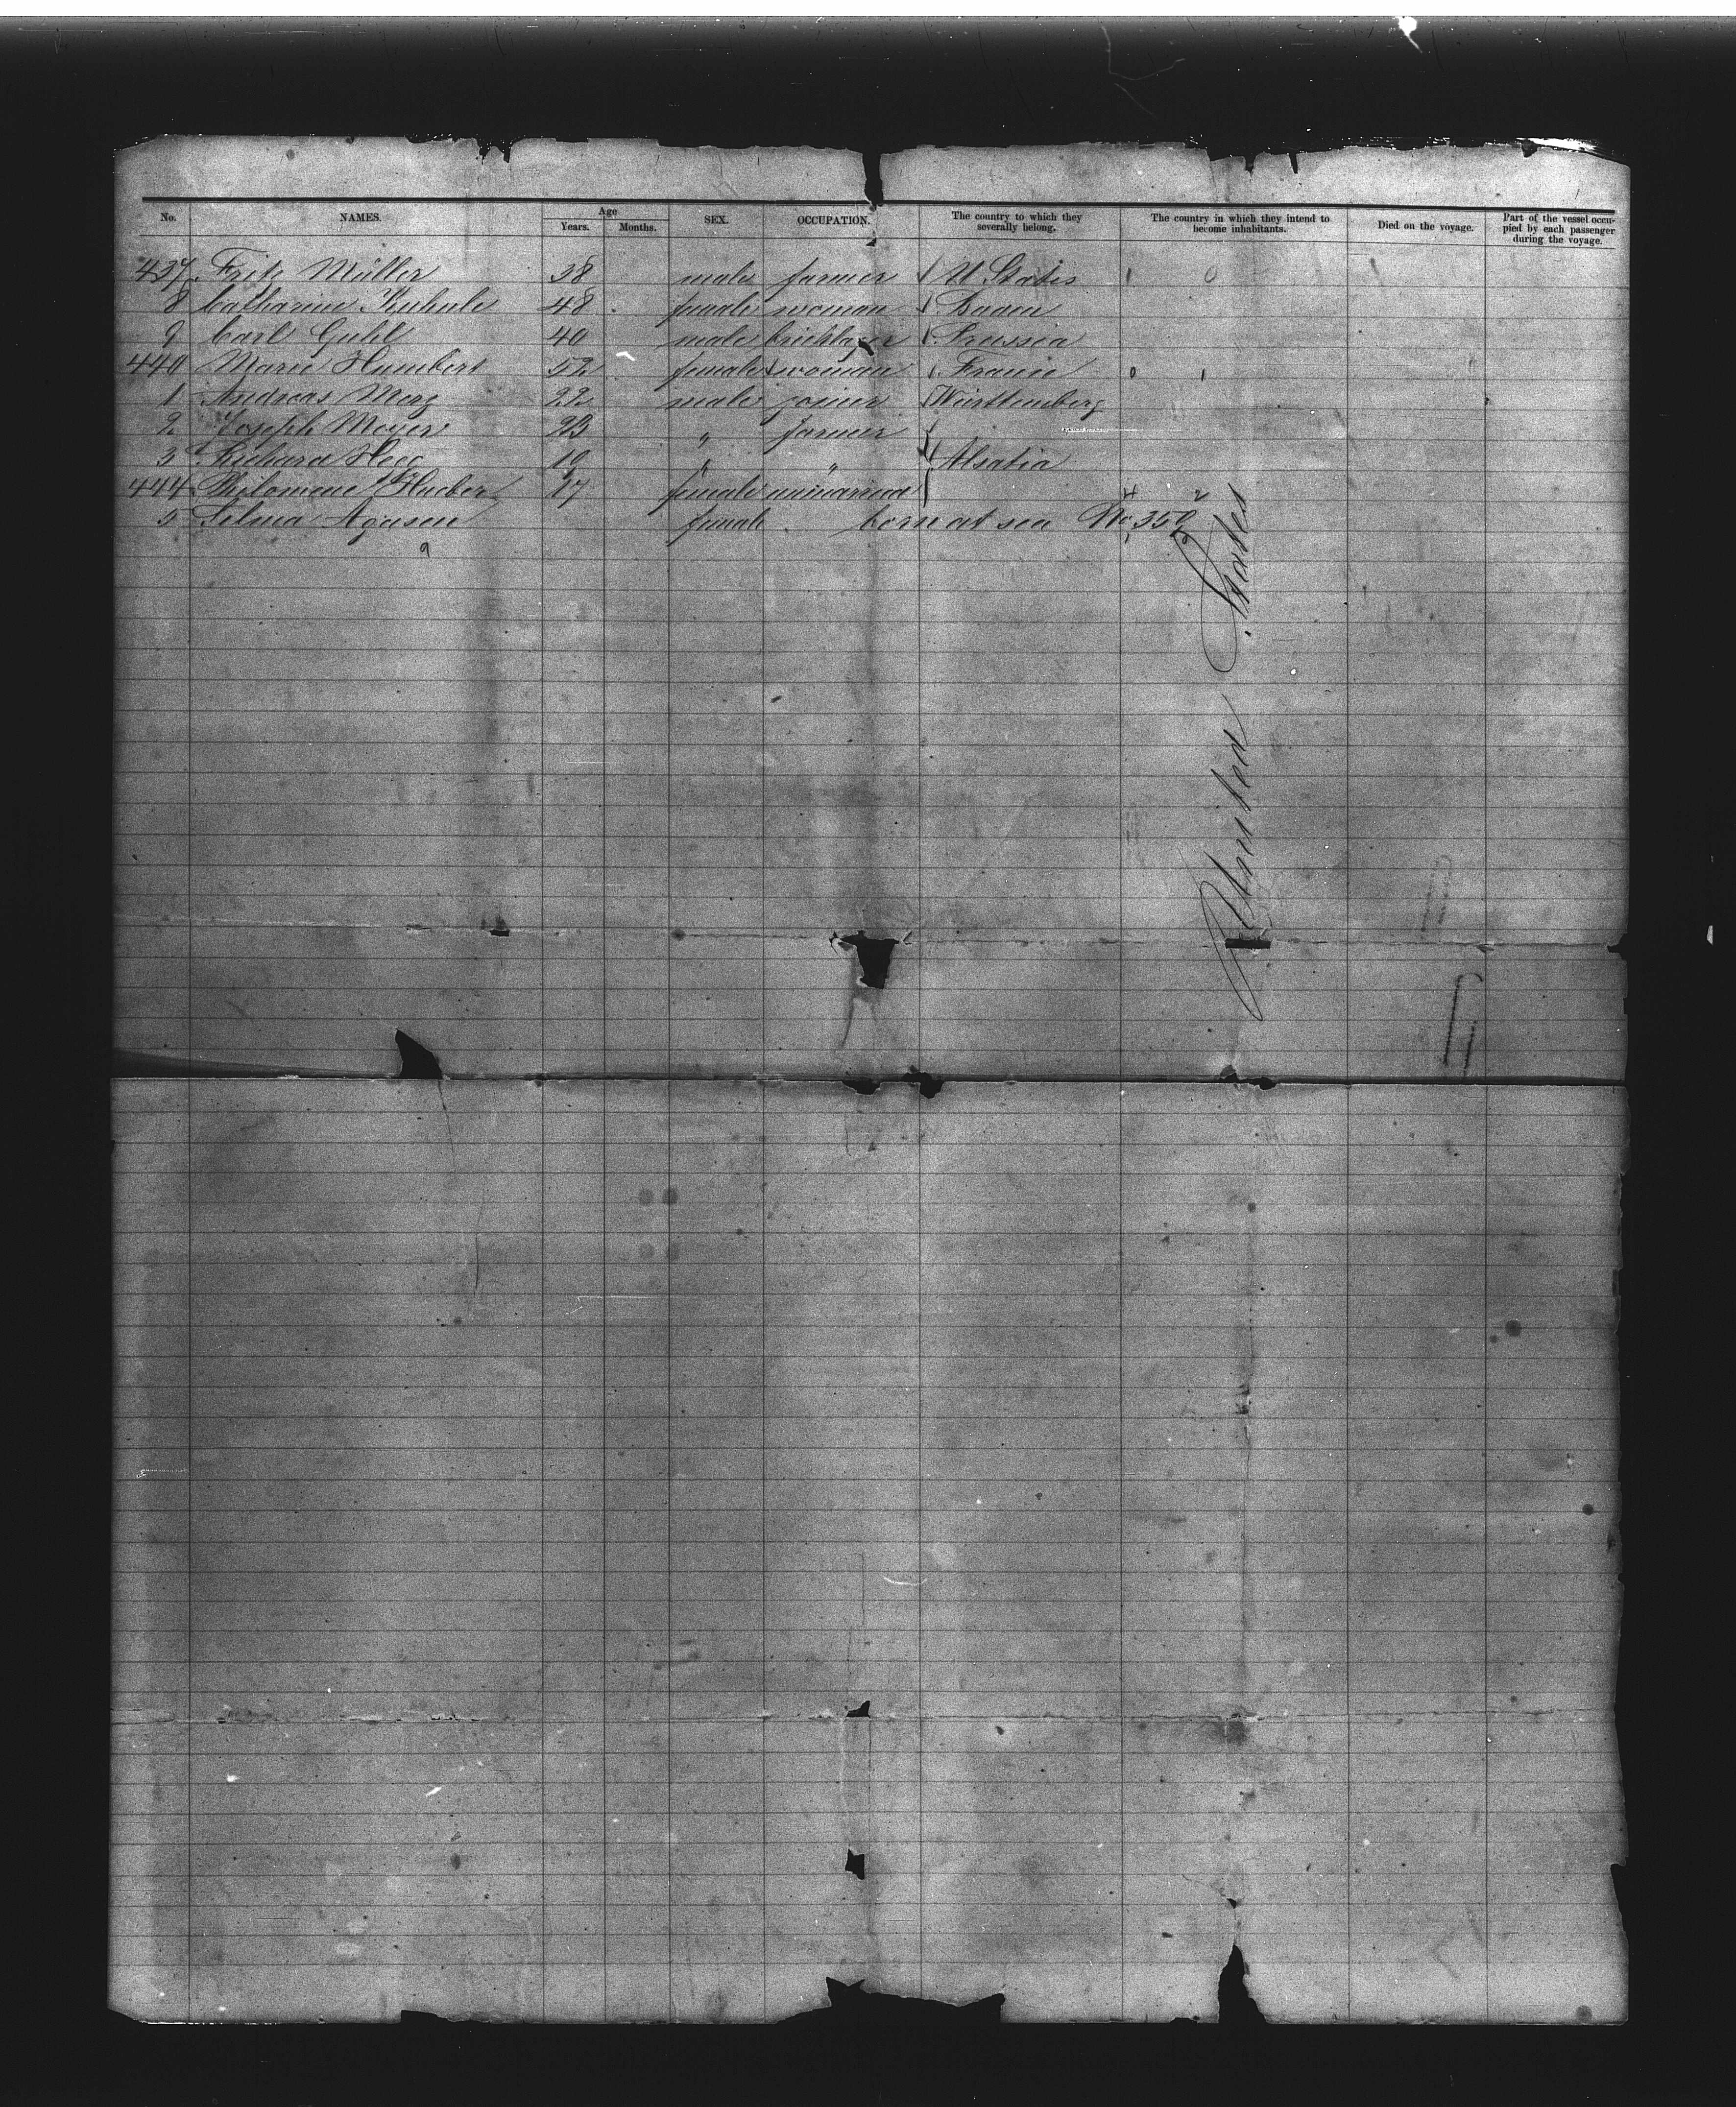 No. NAMES. Age Years. Months. SEX. OCCUPATION. The country to which they severally belong. The country in which they intend to become inhabitants. Died on the voyage. Part of the vessel occupied by each passenger during the voyage.
437 Fritz Müller 38 male farmer U States 1 0
8 Catharine Kuhule 48 female woman Baden
9 Carl Guhl 40 male bricklayer Prussia
440 Marie Humbert 52 female woman France 0 1
1 Andreas Merz 22 male joiner Württemberg
2 Joseph Moyer 23 " farmer
3 Richard 19 " " Alsatia
444 Philomene Hueber 17 female unmarried 4 2
5 Selma Agasen female born at sea No 350
9
United States